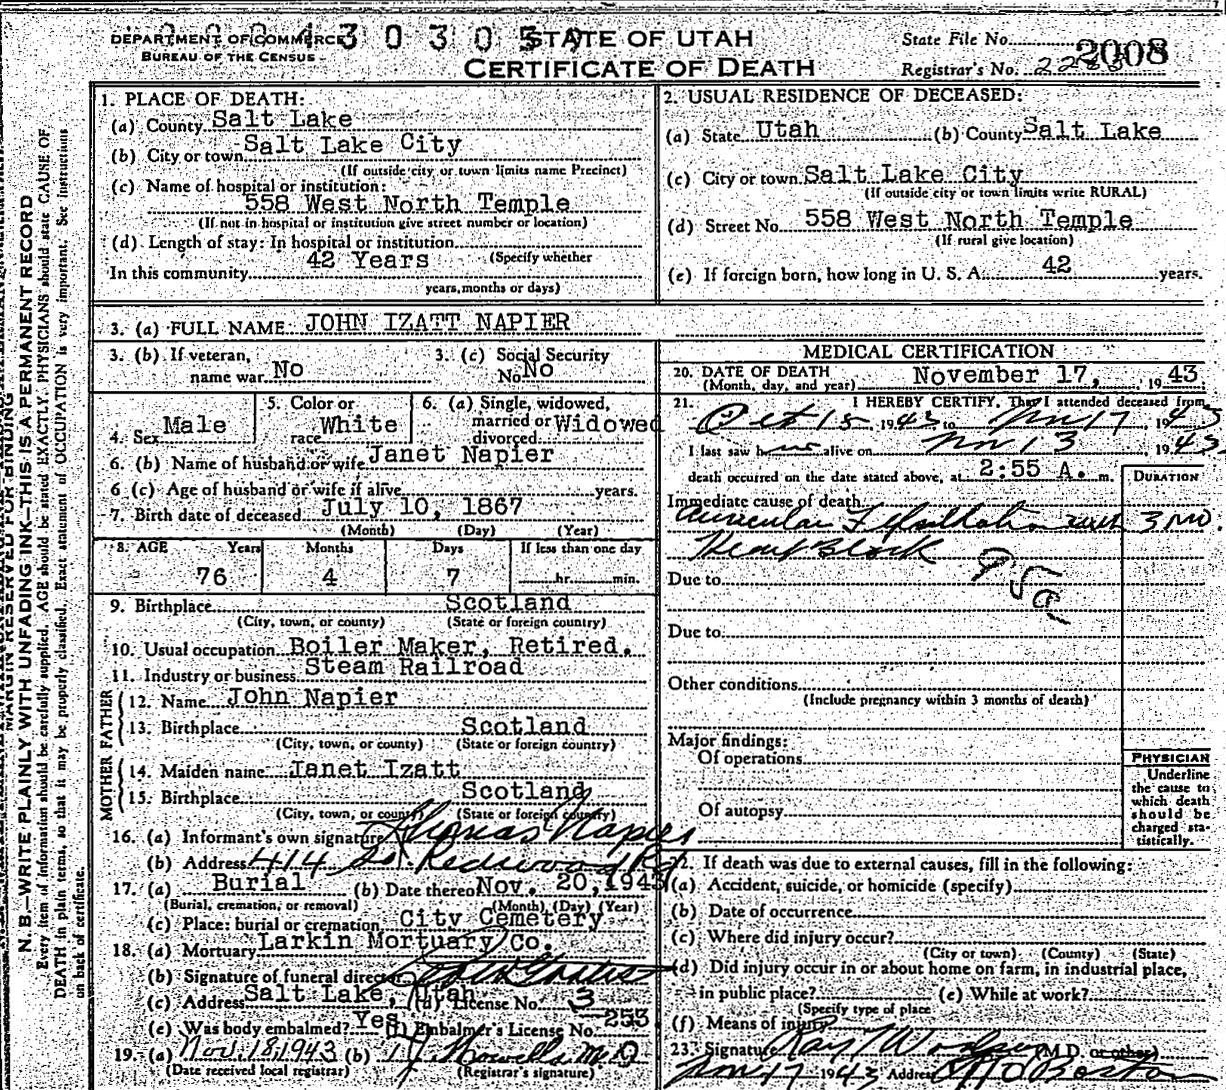 DEPARTMENT OF COMMERCE
BUREAU OF THE CENSUS
STATE OF UTAH
CERTIFICATE OF DEATH
State File No. 2008
Registrar's No. 2288
N. B.—WRITE PLAINLY WITH UNFADING INK—THIS IS A PERMANENT RECORD
MARGIN RESERVED FOR BINDING
Every item of information should be carefully supplied. AGE should be stated EXACTLY. PHYSICIANS should state CAUSE OF
DEATH in plain terms, so that it may be properly classified. Exact statement of OCCUPATION is very important. See instructions
on back of certificate.
1. PLACE OF DEATH:
(a) County Salt Lake
(b) City or town Salt Lake City
(If outside city or town limits name Precinct)
(c) Name of hospital or institution:
558 West North Temple
(If not in hospital or institution give street number or location)
(d) Length of stay: In hospital or institution
42 Years (Specify whether
In this community
years, months or days)
2. USUAL RESIDENCE OF DECEASED:
(a) State Utah (b) County Salt Lake
(c) City or town Salt Lake City
(If outside city or town limits write RURAL)
(d) Street No. 558 West North Temple
(If rural give location)
(e) If foreign born, how long in U. S. A. 42 years.
3. (a) FULL NAME JOHN IZATT NAPIER
3. (b) If veteran, name war No
3. (c) Social Security No. No
4. Sex Male
5. Color or race White
6. (a) Single, widowed, married or divorced Widowed
6. (b) Name of husband or wife Janet Napier
6 (c) Age of husband or wife if alive years.
7. Birth date of deceased July 10, 1867
(Month) (Day) (Year)
8. AGE Years Months Days If less than one day
76 4 7 hr. min.
9. Birthplace Scotland
(City, town, or county) (State or foreign country)
10. Usual occupation Boiler Maker, Retired.
11. Industry or business Steam Railroad
FATHER
12. Name John Napier
13. Birthplace Scotland
(City, town, or county) (State or foreign country)
MOTHER
14. Maiden name Janet Izatt
15. Birthplace Scotland
(City, town, or county) (State or foreign country)
16. (a) Informant's own signature Thomas Napier
(b) Address 414 So. Redwood Rd
17. (a) Burial (b) Date thereof Nov. 20, 1943
(Burial, cremation, or removal) (Month) (Day) (Year)
(c) Place: burial or cremation City Cemetery
18. (a) Mortuary Larkin Mortuary Co.
(b) Signature of funeral director
(c) Address Salt Lake, Utah (d) License No. 3
(e) Was body embalmed? Yes (f) Embalmer's License No. 253
19. (a) Nov. 18, 1943 (b) M.D
(Date received local registrar) (Registrar's signature)
MEDICAL CERTIFICATION
20. DATE OF DEATH November 17, 1943
(Month, day, and year)
21. I HEREBY CERTIFY, That I attended deceased from
Oct 15 1943 to Nov 17 1943
I last saw him alive on Nov 13 1943
death occurred on the date stated above, at 2:55 A. m.
DURATION
Immediate cause of death
Auricular Fibrillation with 3 mo
Heart Block
95a
Due to
Due to
Other conditions
(Include pregnancy within 3 months of death)
Major findings:
Of operations
Of autopsy
PHYSICIAN
Underline
the cause to
which death
should be
charged sta-
tistically.
22. If death was due to external causes, fill in the following:
(a) Accident, suicide, or homicide (specify)
(b) Date of occurrence
(c) Where did injury occur?
(City or town) (County) (State)
(d) Did injury occur in or about home on farm, in industrial place,
in public place? (e) While at work?
(Specify type of place
(f) Means of injury
23. Signature Ray T Woolsey (M.D. or other)
Nov 17 1943 Address Boston